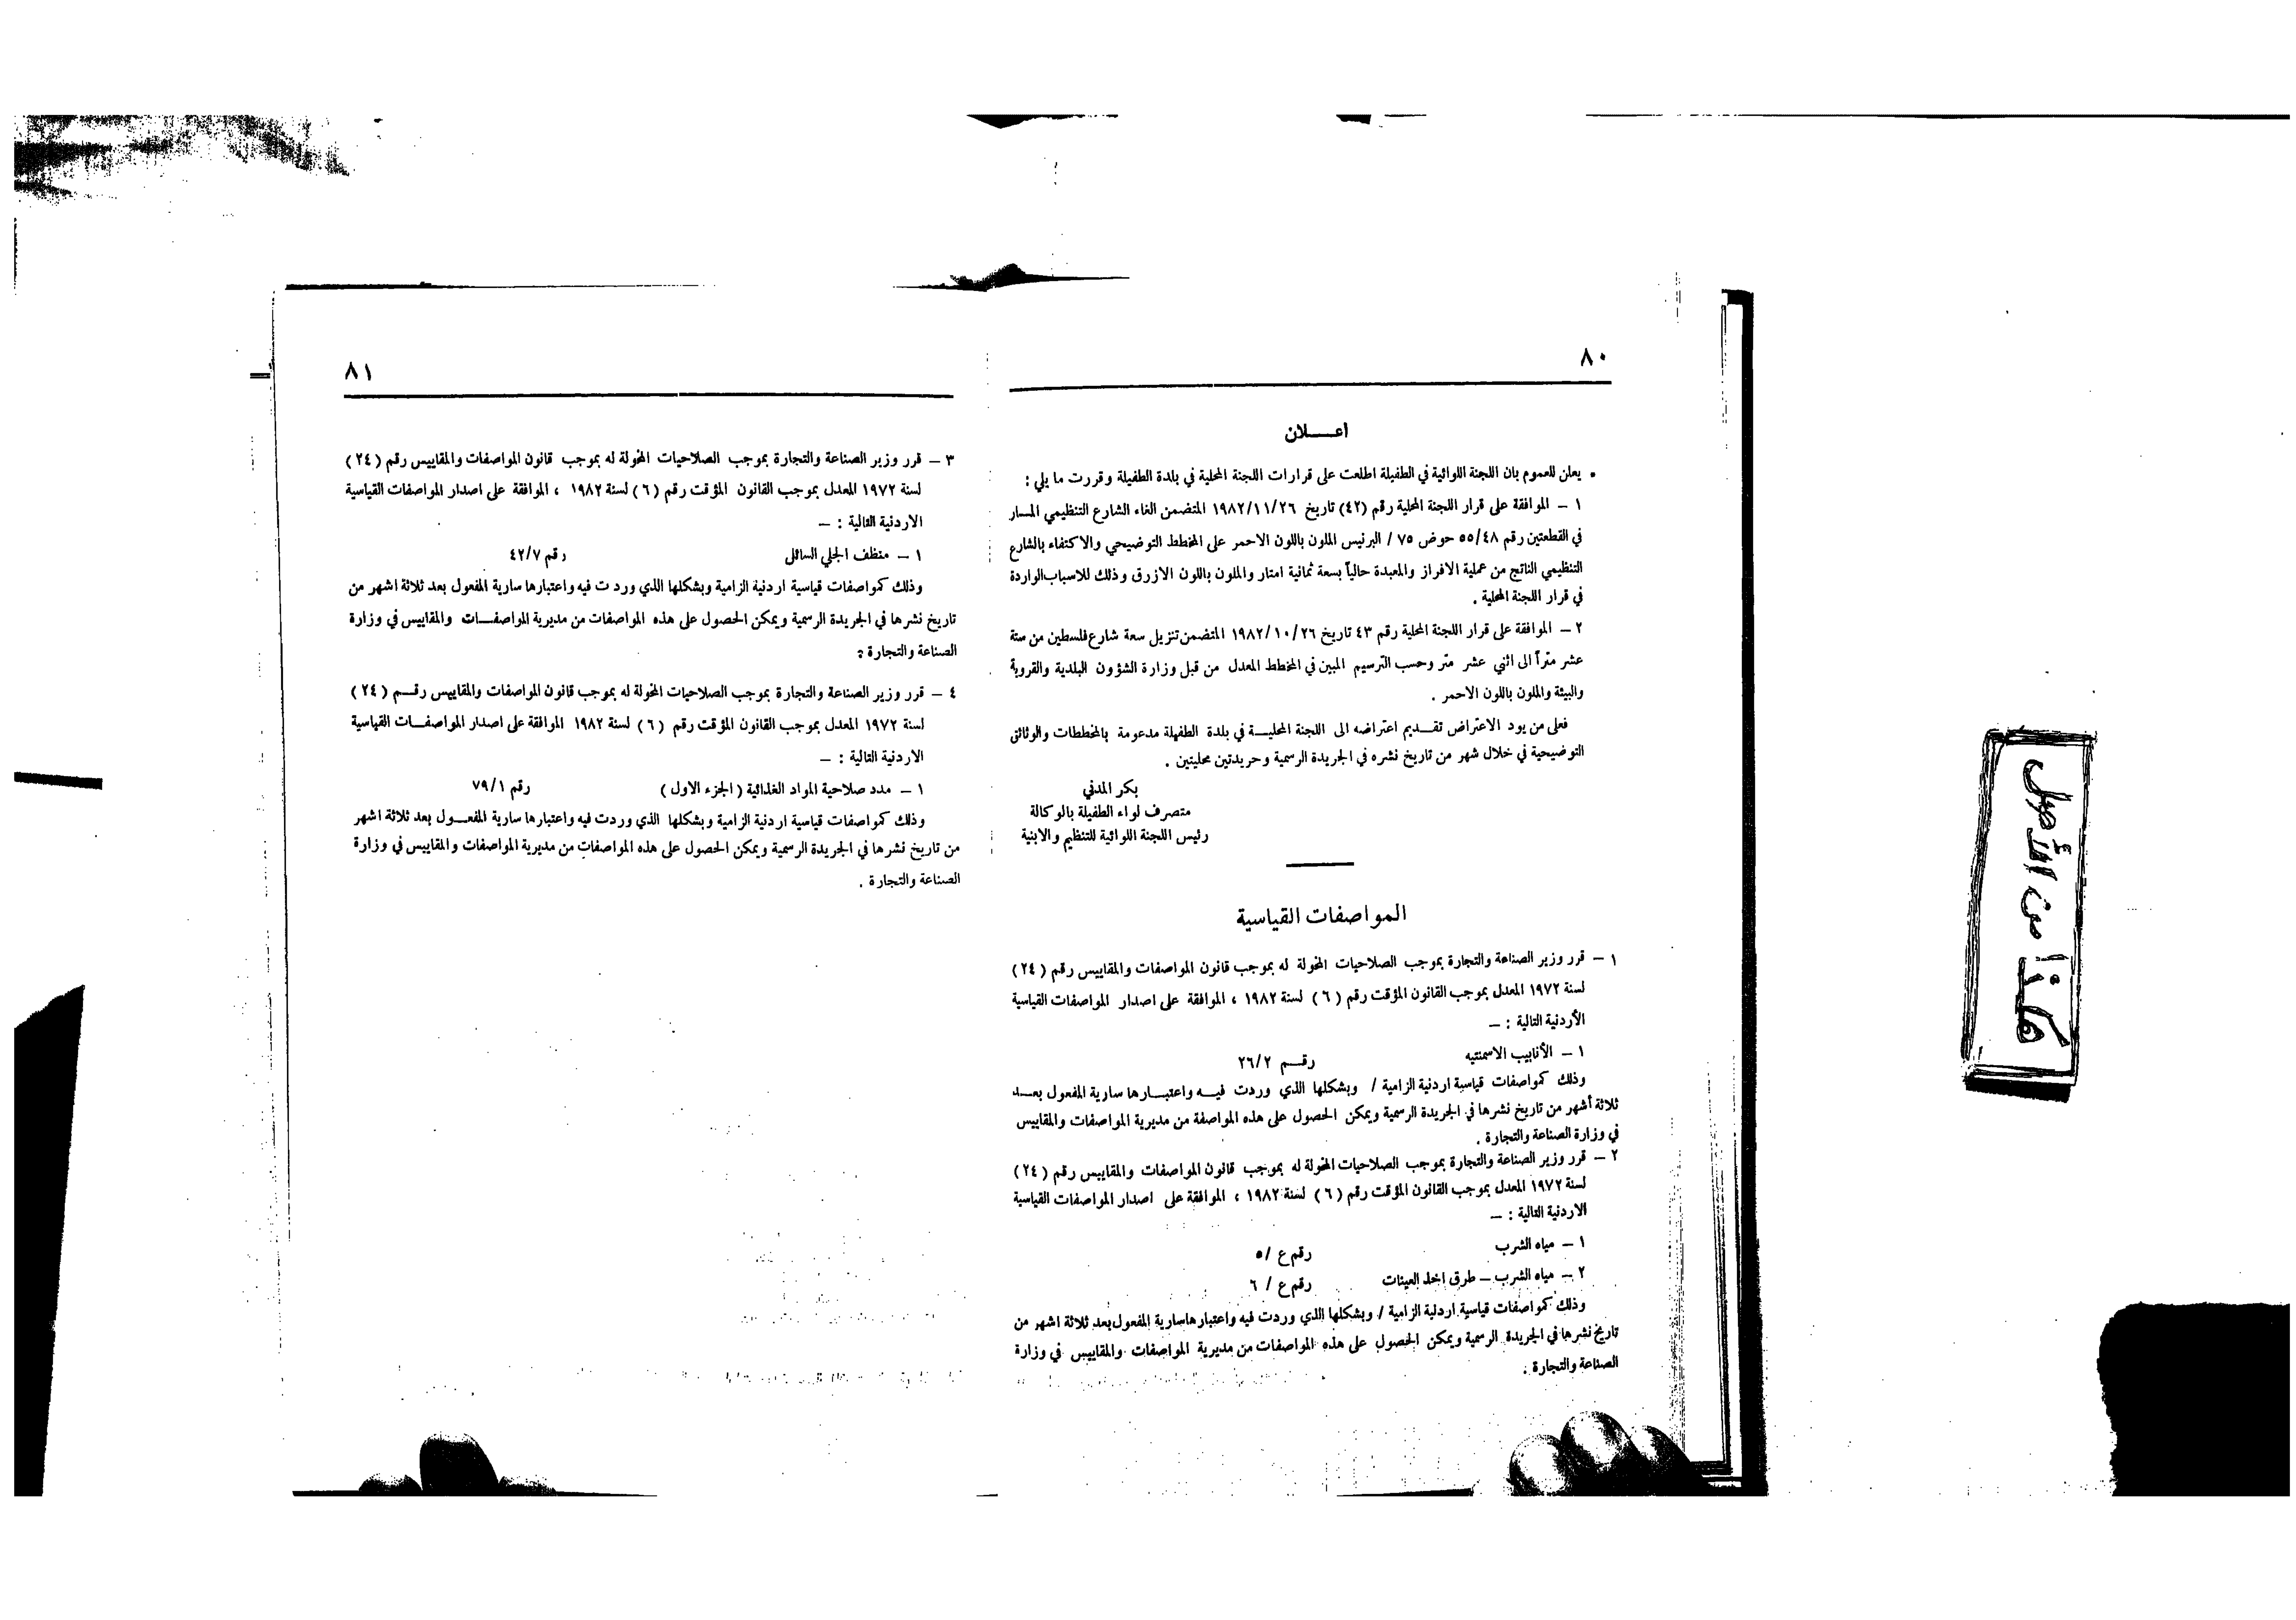 ٨٠
اعـــلان
• يعلن للعموم بان اللجنة اللوائية في الطفيلة اطلعت على قرارات اللجنة المحلية في بلدة الطفيلة وقررت ما يلي :
١ – الموافقة على قرار اللجنة المحلية رقم (٤٢) تاريخ ١٩٨٢/١١/٢٦ المتضمن الغاء الشارع التنظيمي المسار
في القطعتين رقم ٥٥/٤٨ حوض ٧٥ / البرنيس الملون باللون الاحمر على المخطط التوضيحي والاكتفاء بالشارع
التنظيمي الناتج من عملية الافراز والمعبدة حالياً بسعة ثمانية امتار والملون باللون الازرق وذلك للاسباب الواردة
في قرار اللجنة المحلية .
٢ – الموافقة على قرار اللجنة المحلية رقم ٤٣ تاريخ ١٩٨٢/١٠/٢٦ المتضمن تنزيل سعة شارع فلسطين من ستة
عشر متراً الى اثني عشر متر وحسب الترسيم المبين في المخطط المعدل من قبل وزارة الشؤون البلدية والقروية
والبيئة والملون باللون الاحمر .
فعلى من يود الاعتراض تقـديم اعتراضه الى اللجنة المحليـة في بلدة الطفيلة مدعومة بالمخططات والوثائق
التوضيحية في خلال شهر من تاريخ نشره في الجريدة الرسمية وجريدتين محليتين .
بكر المدني
متصرف لواء الطفيلة بالوكالة
رئيس اللجنة اللوائية للتنظيم والابنية
المواصفات القياسية
١ – قرر وزير الصناعة والتجارة بموجب الصلاحيات المخولة له بموجب قانون المواصفات والمقاييس رقم (٢٤)
لسنة ١٩٧٢ المعدل بموجب القانون المؤقت رقم (٦) لسنة ١٩٨٢ ، الموافقة على اصدار المواصفات القياسية
الأردنية التالية : –
١ – الأنابيب الاسمنتيه رقـم ٢٦/٢
وذلك كمواصفات قياسية اردنية الزامية / وبشكلها الذي وردت فيـه واعتبـارها سارية المفعول بعـد
ثلاثة أشهر من تاريخ نشرها في الجريدة الرسمية ويمكن الحصول على هذه المواصفة من مديرية المواصفات والمقاييس
في وزارة الصناعة والتجارة .
٢ – قرر وزير الصناعة والتجارة بموجب الصلاحيات المخولة له بموجب قانون المواصفات والمقاييس رقم (٢٤)
لسنة ١٩٧٢ المعدل بموجب القانون المؤقت رقم (٦) لسنة ١٩٨٢ ، الموافقة على اصدار المواصفات القياسية
الاردنية التالية : –
١ – مياه الشرب رقم ع /٥
٢ – مياه الشرب – طرق اخذ العينات رقم ع / ٦
وذلك كمواصفات قياسية اردنية الزامية / وبشكلها الذي وردت فيه واعتبارها سارية المفعول بعد ثلاثة اشهر من
تاريخ نشرها في الجريدة الرسمية ويمكن الحصول على هذه المواصفات من مديرية المواصفات والمقاييس في وزارة
الصناعة والتجارة .
٨١
٣ – قرر وزير الصناعة والتجارة بموجب الصلاحيات المخولة له بموجب قانون المواصفات والمقاييس رقم (٢٤)
لسنة ١٩٧٢ المعدل بموجب القانون المؤقت رقم (٦) لسنة ١٩٨٢ ، الموافقة على اصدار المواصفات القياسية
الاردنية التالية : –
١ – منظف الجلي السائل رقم ٤٢/٧
وذلك كمواصفات قياسية اردنية الزامية وبشكلها الذي وردت فيه واعتبارها سارية المفعول بعد ثلاثة اشهر من
تاريخ نشرها في الجريدة الرسمية ويمكن الحصول على هذه المواصفات من مديرية المواصفـات والمقاييس في وزارة
الصناعة والتجارة .
٤ – قرر وزير الصناعة والتجارة بموجب الصلاحيات المخولة له بموجب قانون المواصفات والمقاييس رقـم (٢٤)
لسنة ١٩٧٢ المعدل بموجب القانون المؤقت رقم (٦) لسنة ١٩٨٢ الموافقة على اصدار المواصفـات القياسية
الاردنية التالية : –
١ – مدد صلاحية المواد الغذائية (الجزء الاول) رقم ٧٩/١
وذلك كمواصفات قياسية اردنية الزامية وبشكلها الذي وردت فيه واعتبارها سارية المفعـول بعد ثلاثة اشهر
من تاريخ نشرها في الجريدة الرسمية ويمكن الحصول على هذه المواصفات من مديرية المواصفات والمقاييس في وزارة
الصناعة والتجارة .
هكذا من الأصل